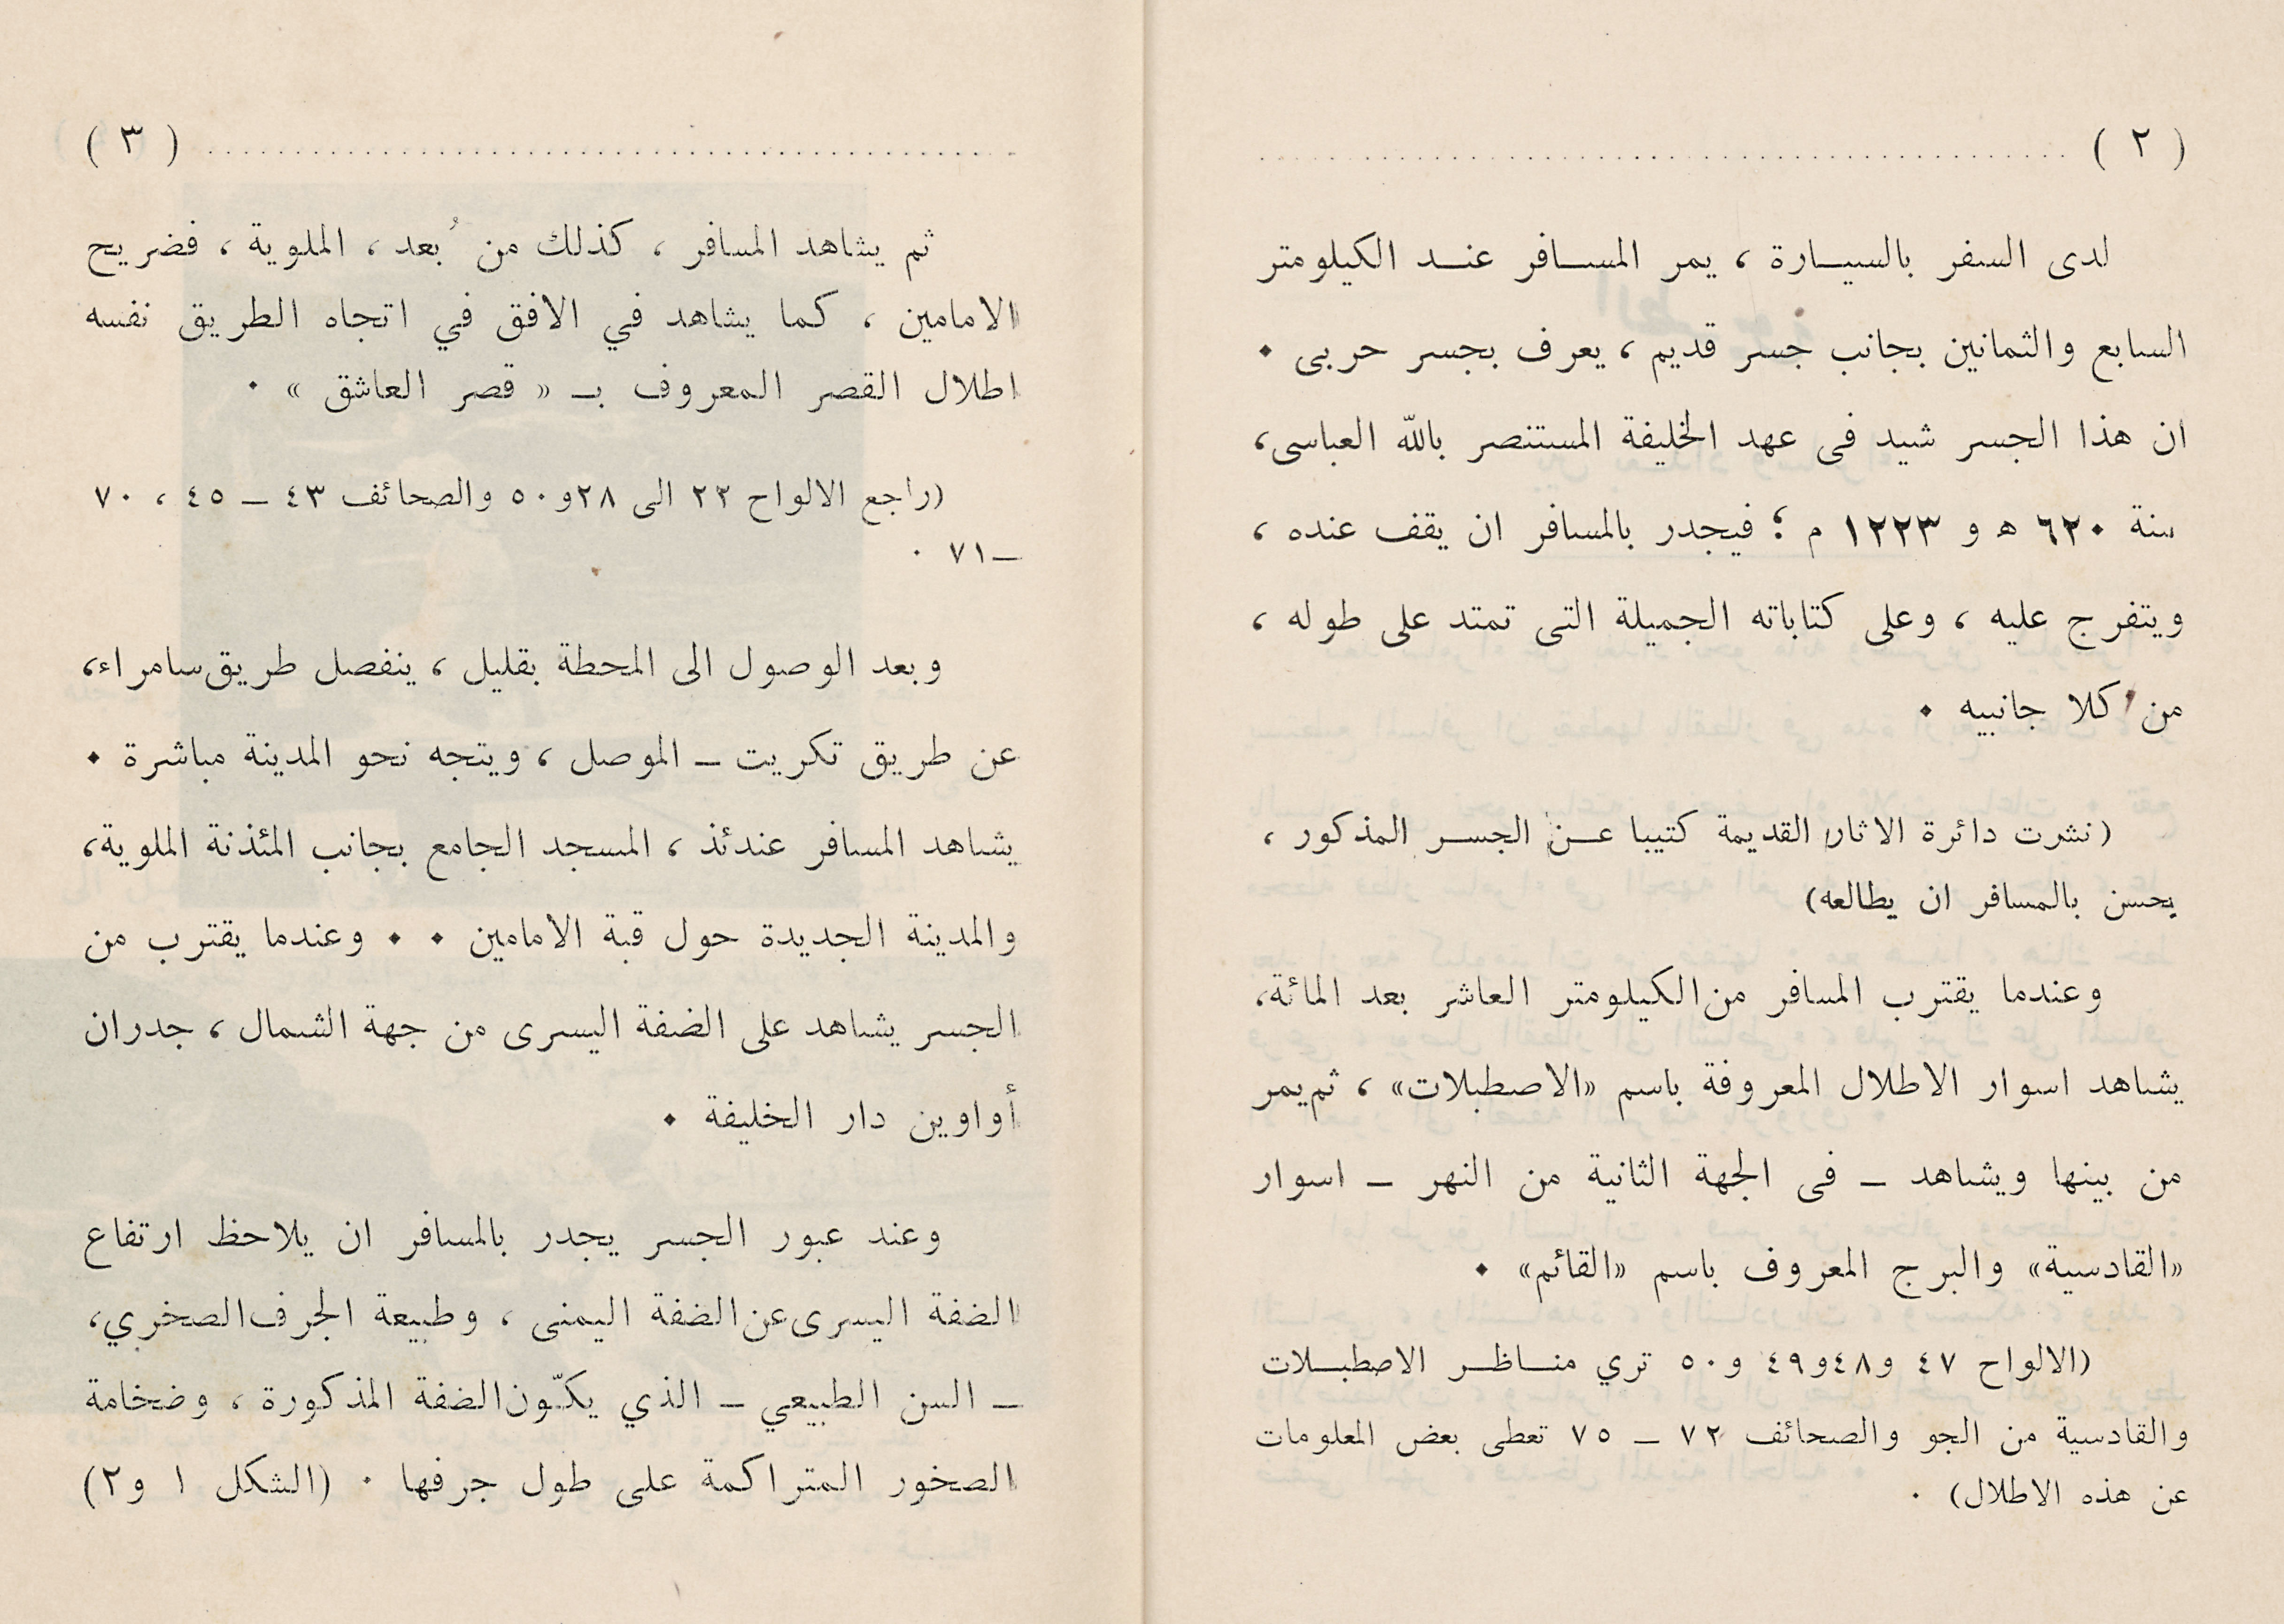 ( ٢ )
لدى السفر بالسيارة ، يمر المسافر عند الكيلومتر
السابع والثمانين بجانب جسر قديم ، يعرف بجسر حربى ٠
ان هذا الجسر شيد فى عهد الخليفة المستنصر باللّه العباسى،
سنة ٦٢٠ ه و ١٢٢٣ م ؛ فيجدر بالمسافر ان يقف عنده ،
ويتفرج عليه ، وعلى كتاباته الجميلة التى تمتد على طوله ،
من كلا جانبيه ٠
(نشرت دائرة الاثار القديمة كتيبا عن الجسر المذكور ،
يحسن بالمسافر ان يطالعه)
وعندما يقترب المسافر من الكيلومتر العاشر بعد المائة،
يشاهد اسوار الاطلال المعروفة باسم «الاصطبلات» ، ثم يمر
من بينها ويشاهد – فى الجهة الثانية من النهر – اسوار
«القادسية» والبرج المعروف باسم «القائم» ٠
(الالواح ٤٧ و٤٨و٤٩ و٥٠ تري مناظر الاصطبلات
والقادسية من الجو والصحائف ٧٢ – ٧٥ تعطى بعض المعلومات
عن هذه الاطلال) ٠
( ٣ )
ثم يشاهد المسافر ، كذلك من بُعد ، الملوية ، فضريح
الامامين ، كما يشاهد في الافق في اتجاه الطريق نفسه
اطلال القصر المعروف بـ « قصر العاشق » ٠
(راجع الالواح ٢٣ الى ٢٨و٥٠ والصحائف ٤٣ – ٤٥ ، ٧٠
–٧١ ٠
وبعد الوصول الى المحطة بقليل ، ينفصل طريق سامراء،
عن طريق تكريت – الموصل ، ويتجه نحو المدينة مباشرة ٠
يشاهد المسافر عندئذ ، المسجد الجامع بجانب المئذنة الملوية،
والمدينة الجديدة حول قبة الامامين ٠ ٠ وعندما يقترب من
الجسر يشاهد على الضفة اليسرى من جهة الشمال ، جدران
أواوين دار الخليفة ٠
وعند عبور الجسر يجدر بالمسافر ان يلاحظ ارتفاع
الضفة اليسرى عن الضفة اليمنى ، وطبيعة الجرف الصخري،
– السن الطبيعي – الذي يكوّن الضفة المذكورة ، وضخامة
الصخور المتراكمة على طول جرفها ٠ (الشكل ١ و٢)